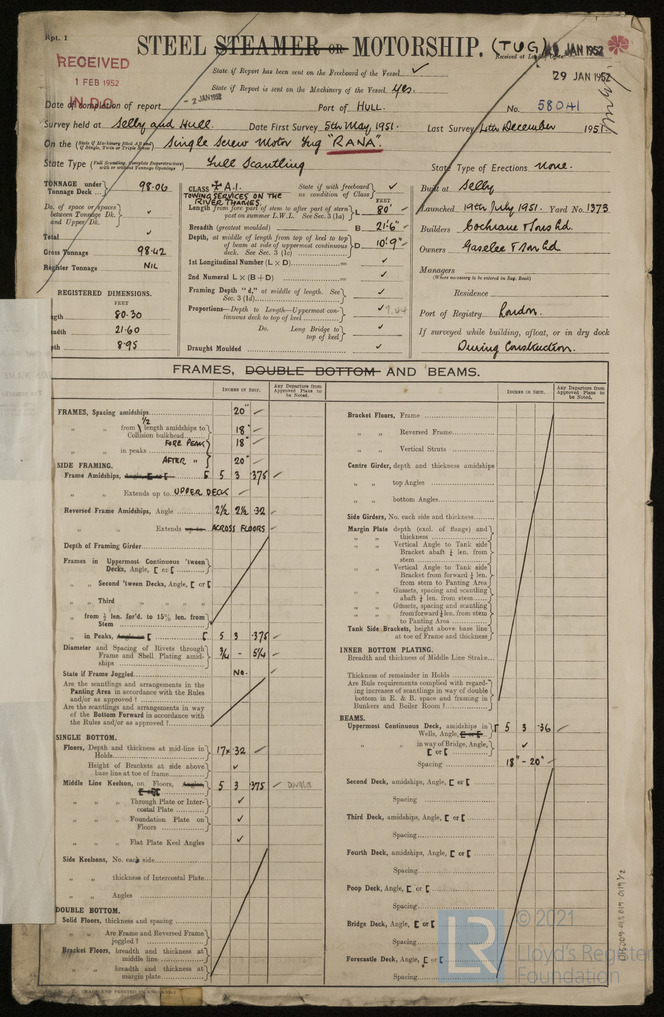 Rpt. 1
STEEL STEAMER OR MOTORSHIP. (TUG)
JAN 1952
Received at
29 JAN 1952
RECEIVED
1 FEB 1952
IN D.O.
State if Report has been sent on the Freeboard of the Vessel ✓
State if Report is sent on the Machinery of the Vessel Yes.
Date of completion of report - 2 JAN 1952 Port of HULL. No. 58041
Survey held at Selby and Hull. Date First Survey 5th May, 1951. Last Survey 4th December 1951
On the (State if Machinery fitted Aft and if Single, Twin or Triple Screw) Single Screw Motor Tug "RANA".
State Type (Full Scantling, Complete Superstructure with or without Tonnage Openings) Full Scantling State Type of Erections None.
TONNAGE under Tonnage Deck 98.06
Do. of space or spaces between Tonnage Dk. and Upper Dk. ✓
Total ✓
Gross Tonnage 98.42
Register Tonnage NIL
REGISTERED DIMENSIONS.
FEET
ngth 80.30
eadth 21.60
pth 8.95
CLASS ✠ A.1. State if with freeboard as condition of Class ✓
TOWING SERVICES ON THE RIVER THAMES.
FEET
Length from fore part of stem to after part of stern post on summer L.W.L. See Sec. 3 (1a) L 80'
Breadth (greatest moulded) B 21'6"
Depth, at middle of length from top of keel to top of beam at side of uppermost continuous deck. See Sec. 3 (1c) D 10'9"
1st Longitudinal Number (L × D) ✓
2nd Numeral L × (B + D) ✓
Framing Depth "d," at middle of length. See Sec. 3 (1d) ✓
Proportions—Depth to Length—Uppermost continuous deck to top of keel ✓
Do. Long Bridge to top of keel ✓
Draught Moulded ✓
Built at Selby
Launched 19th July 1951. Yard No. 1373
Builders Cochrane & Sons Ld
Owners Gaselee & Son Ld.
Managers
(Where necessary to be entered in Reg. Book)
Residence
Port of Registry London.
If surveyed while building, afloat, or in dry dock
During Construction.
FRAMES, DOUBLE BOTTOM AND BEAMS.
INCHES IN SHIP. Any Departure from Approved Plans to be Noted.
FRAMES, Spacing amidships 20"
" " from 1/2 length amidships to Collision bulkhead 18"
FORE PEAK 18"
" " in peaks
AFTER " 20"
SIDE FRAMING.
Frame Amidships, Angle, [ or [ 5 3 .375
" " Extends up to UPPER DECK
Reversed Frame Amidships, Angle 2½ 2½ .32
" " Extends up to ACROSS FLOORS
Depth of Framing Girder
Frames in Uppermost Continuous 'tween Decks, Angle, [ or [
" " Second 'tween Decks, Angle, [ or [
" " Third " " " "
" " from ¼ len. for'd. to 15% len. from Stem
" " in Peaks, Angle or [ 5 3 .375
Diameter and Spacing of Rivets through Frame and Shell Plating amidships ¾ - 5¼
State if Frame Joggled No.
Are the scantlings and arrangements in the Panting Area in accordance with the Rules and/or as approved ?
Are the scantlings and arrangements in way of the Bottom Forward in accordance with the Rules and/or as approved ?
SINGLE BOTTOM.
Floors, Depth and thickness at mid-line in Holds 17 × .32
" Height of Brackets at side above base line at toe of frame ✓
Middle Line Keelson, on Floors, Angles, [ or [ 5 3 .375 DOUBLE
" " " Through Plate or Intercostal Plate ✓
" " " Foundation Plate on Floors ✓
" " " Flat Plate Keel Angles ✓
Side Keelsons, No. each side
" " thickness of Intercostal Plate
" " Angles
DOUBLE BOTTOM.
Solid Floors, thickness and spacing
" " Are Frame and Reversed Frame joggled ?
Bracket Floors, breadth and thickness at middle line
" " breadth and thickness at margin plate
INCHES IN SHIP. Any Departure from Approved Plans to be Noted.
Bracket Floors, Frame
" " Reversed Frame
" " Vertical Struts
Centre Girder, depth and thickness amidships
" " top Angles
" " bottom Angles
Side Girders, No. each side and thickness
Margin Plate depth (excl. of flange) and thickness
" " Vertical Angle to Tank side Bracket abaft ¼ len. from stem
" " Vertical Angle to Tank side Bracket from forward ¼ len. from stem to Panting Area
" " Gussets, spacing and scantling abaft ¼ len. from stem
" " Gussets, spacing and scantling from forward ¼ len. from stem to Panting Area
Tank Side Brackets, height above base line at toe of Frame and thickness
INNER BOTTOM PLATING.
Breadth and thickness of Middle Line Strake
Thickness of remainder in Holds
Are Rule requirements complied with regarding increases of scantlings in way of double bottom in E. & B. space and framing in Bunkers and Boiler Room ?
BEAMS.
Uppermost Continuous Deck, amidships in Wells, Angle, [ or [ 5 3 .36
" " in way of Bridge, Angle, [ or [ ✓
Spacing 18" - 20"
Second Deck, amidships, Angle, [ or [
Spacing
Third Deck, amidships, Angle, [ or [
Spacing
Fourth Deck, amidships, Angle, [ or [
Spacing
Poop Deck, Angle, [ or [
Spacing
Bridge Deck, Angle, [ or [
Spacing
Forecastle Deck, Angle, [ or [
Spacing
LR
© 2021
Lloyd's Register
Foundation